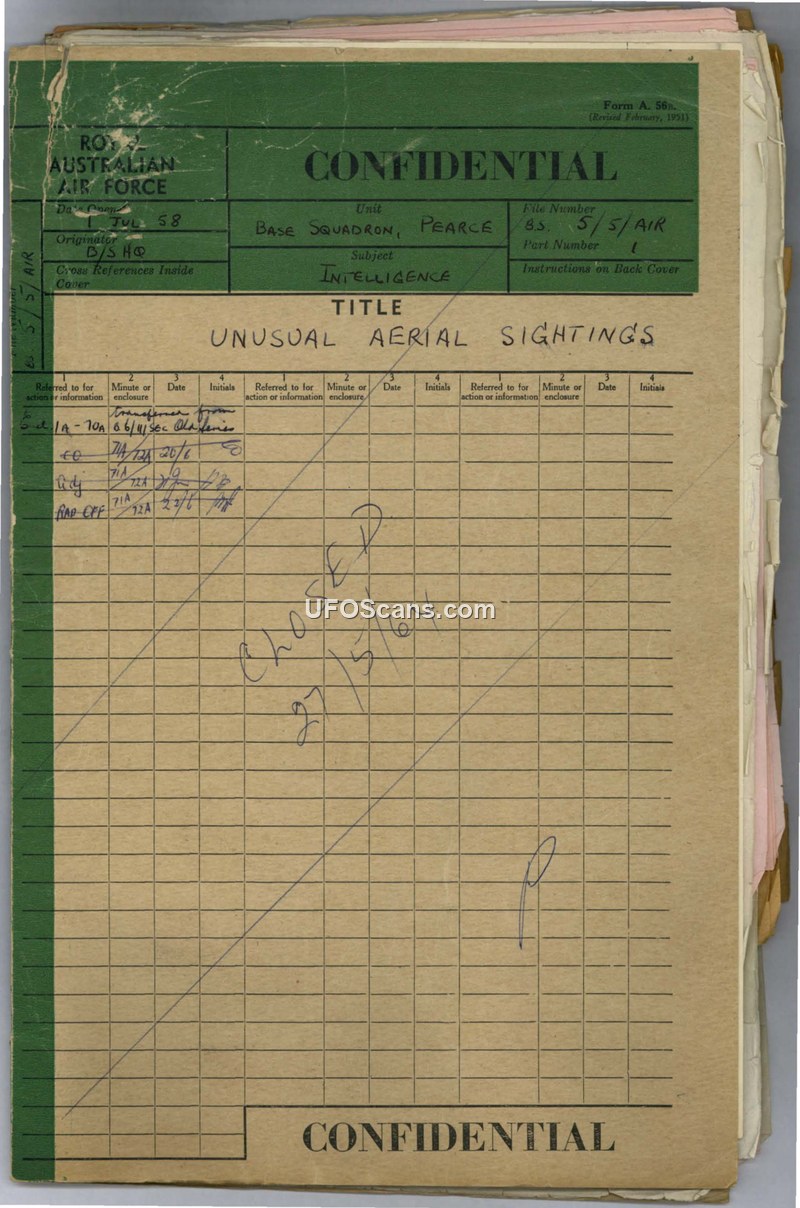 Form A. 56
(Revised February, 1951)
ROYAL
AUSTRALIAN
AIR FORCE
CONFIDENTIAL
Date Opened
1 JUL 58
Originator
B/S HQ
Cross References Inside
Cover
Unit
BASE SQUADRON, PEARCE
Subject
INTELLIGENCE
File Number
B.S. 5/5/AIR
Part Number 1
Instructions on Back Cover
5/5/AIR
TITLE
UNUSUAL AERIAL SIGHTINGS
1 2 3 4 1 2 3 4 1 2 3 4
Referred to for action or information Minute or enclosure Date Initials Referred to for action or information Minute or enclosure Date Initials Referred to for action or information Minute or enclosure Date Initials
transferred from
1A - 70A 6/11/Sec Old Series
CO 71A/72A 20/6
Adj 71A/72A
71A/72A 22/6
CLOSED
27/5/64
UFOScans.com
CONFIDENTIAL